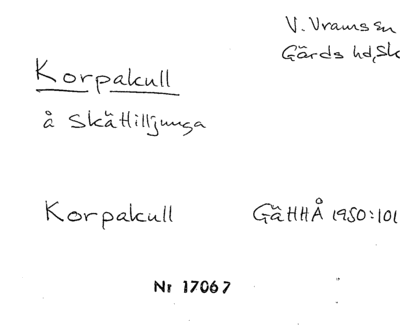 V. Vrams sn
Gärds hd, Sk
Korpakull
å Skättilljunga
Korpakull GäHHÅ 1950:101
Nr 17067